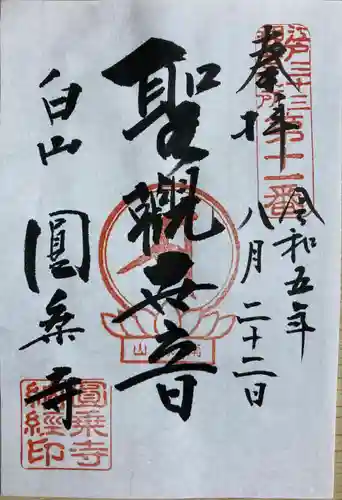 奉拝
令和五年
八月二十二日
聖觀世音
白山
圓乗寺
江戸三十三
第十一番
圓乗寺
納經印
山